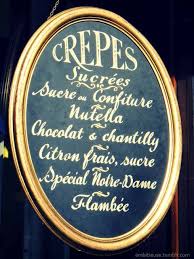 CRÊPES
Sucrées
Sucre ou Confiture
Nutella
Chocolat & chantilly
Citron frais, sucre
Spécial Notre-Dame
Flambée